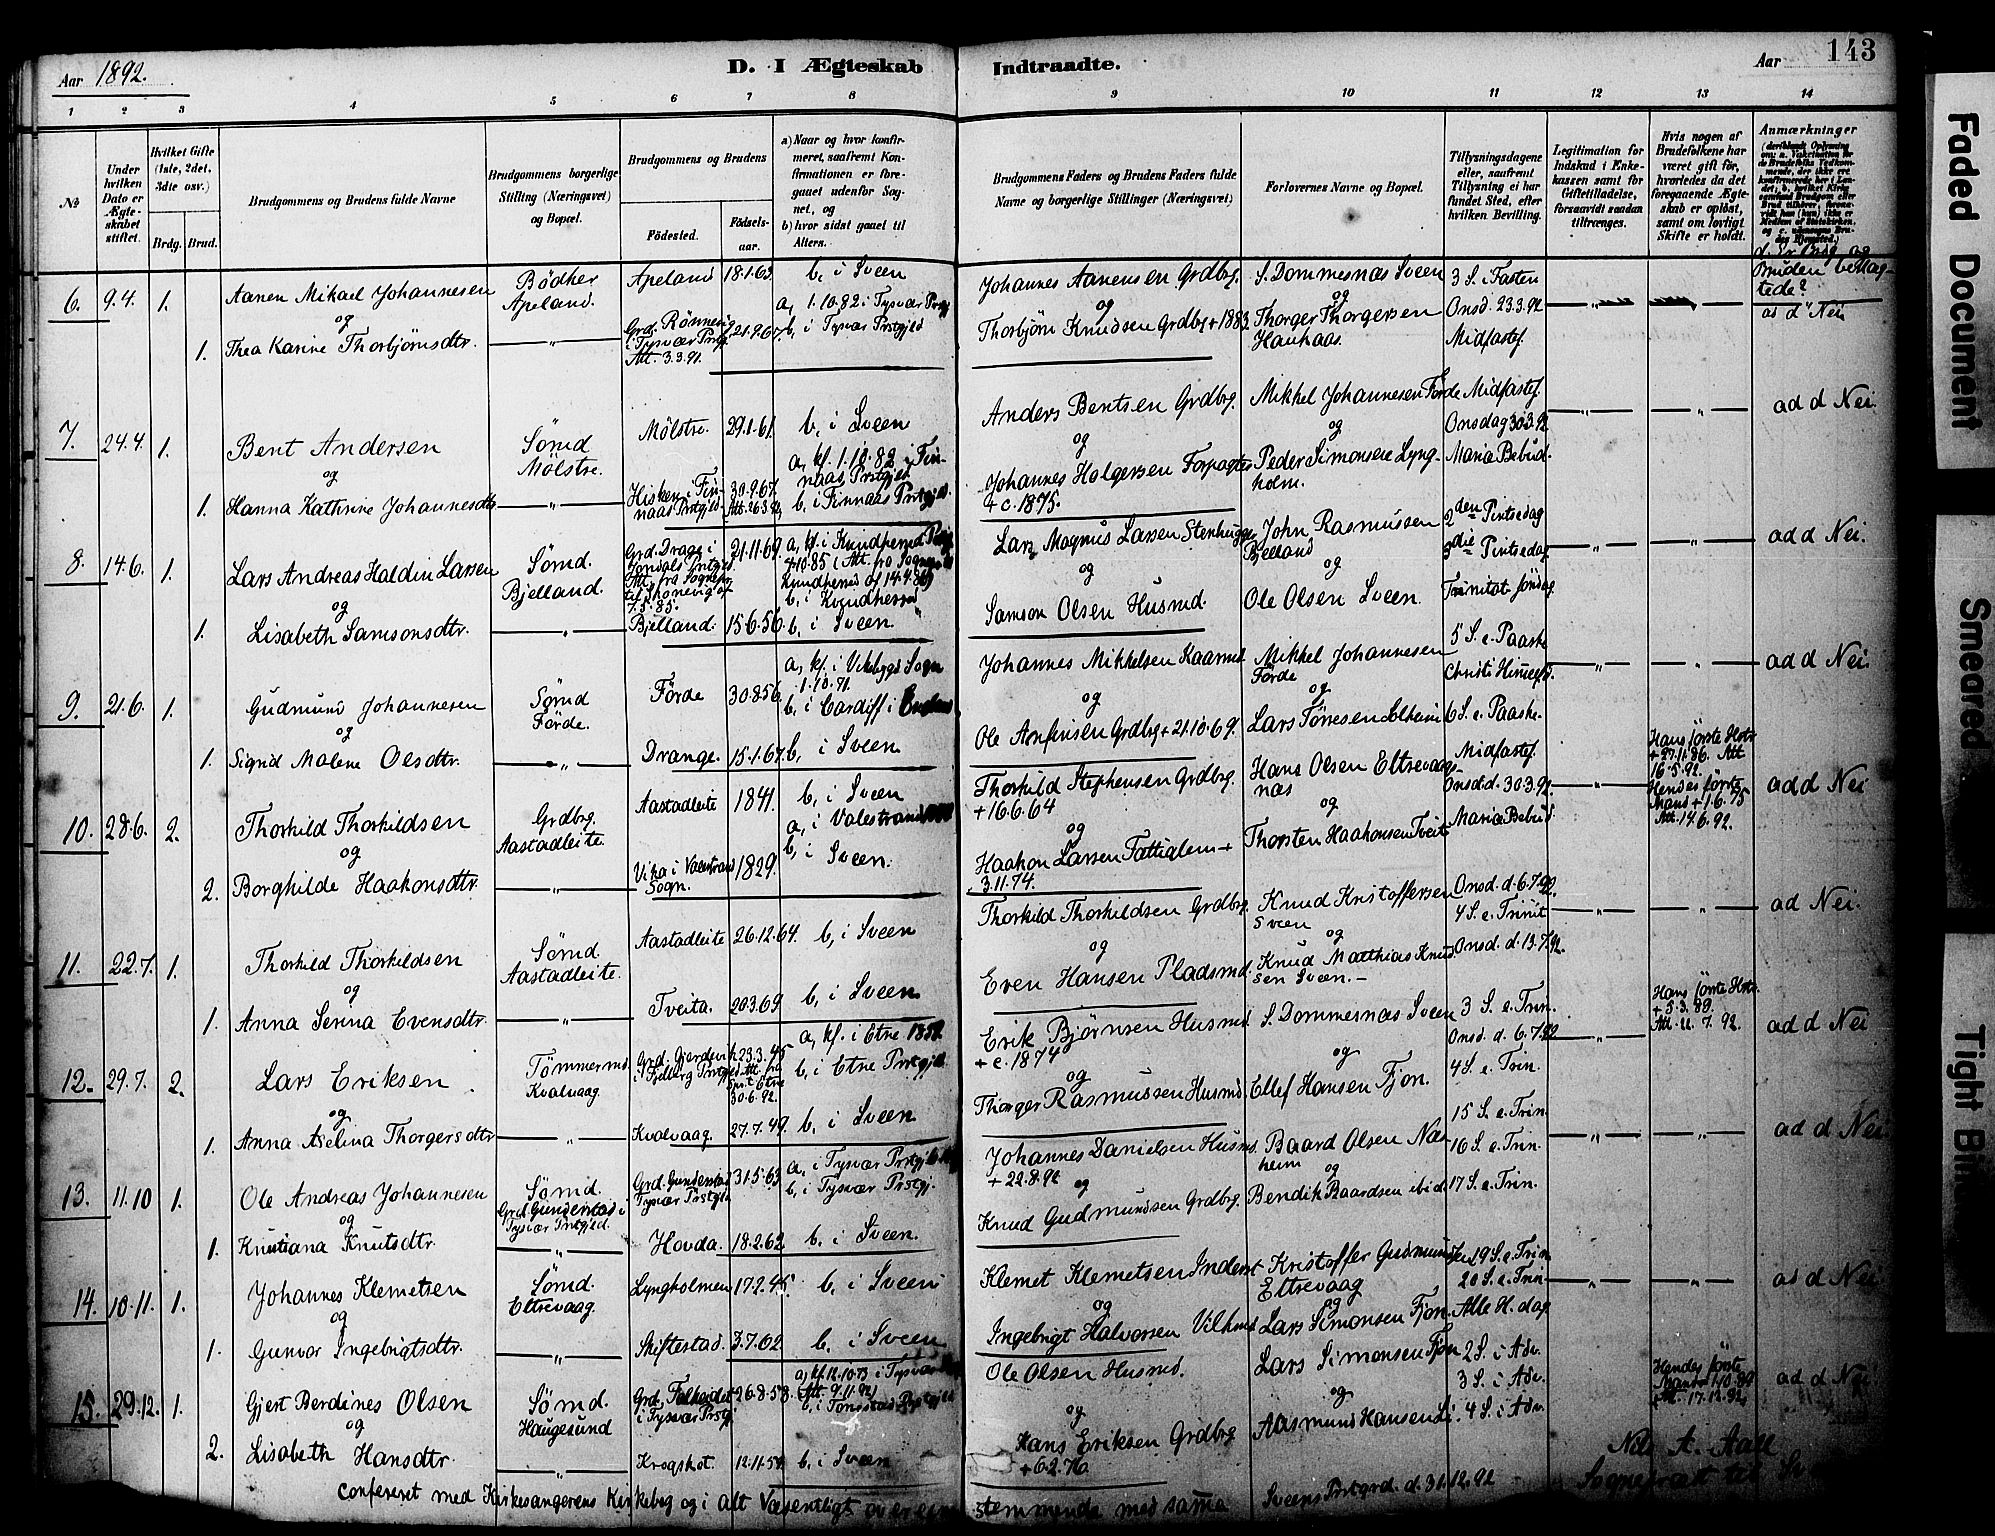 Aar 1892.
D. I Ægteskab Indtraadte.
Aar 143
1 2 3 4 5 6 7 8 9 10 11 12 13 14
No
Under hvilken Dato er Ægteskabet stiftet.
Hvilket Gifte (1ste, 2det, 3die osv.)
Brdg. Brud.
Brudgommens og Brudens fulde Navne
Brudgommens borgerlige Stilling (Næringsvei) og Bopæl.
Brudgommens og Brudens
Fødested. Fødselsaar.
a) Naar og hvor konfirmeret, saafremt Konfirmationen er foregaaet udenfor Sognet, og
b) hvor sidst gaaet til Alters.
Brudgommens Faders og Brudens Faders fulde Navne og borgerlige Stillinger (Næringsvei)
Forlovernes Navne og Bopæl.
Tillysningsdagene eller, saafremt Tillysning ei har fundet Sted, efter hvilken Bevilling.
Legitimation for Indskud i Enkekassen samt for Giftetilladelse, forsaavidt saadan tiltrænges.
Hvis nogen af Brudefolkene har været gift før, hvorledes da det foregaaende Ægteskab er opløst, samt om lovligt Skifte er holdt.
Anmærkninger
6. 9.4. 1. Aanen Mikael Johannesen
Bödker Apeland.
Apeland 18.1.63
b, i Sveen
Johannes Aanensen Grdbrg.
S. Dommesnæs Sveen
3 S. i Fasten
Bruden beslægtede?
og
a, 1.10.82 i Tysvær Prstgj
og
Onsd. 23.3.92
ad d Nei
1. Thea Karine Thorbjörnsdtr.
Grd. Rönnevig i Tysvær Prstgj. Att. 3.3.91.
21.9.67.
b, i Tysvær Prstgjld
Thorbjörn Knudsen Grdbrg + 1883
Thorger Thorgersen Haukaas.
Midfastef.
7. 24.4. 1. Bent Andersen
Sömd Mölstre.
Mölstre. 29.1.61.
b, i Sveen
Anders Bentsen Grdbrg.
Mikkel Johannesen Förde
Midfastef.
ad d Nei.
og
a, kf. 1.10.82 i Finnaas Prstgjld
og
Onsdag 30.3.92
1. Hanna Kathrine Johannesdtr.
Hisken i Finnaas Prstgjld.
30.9.67. Att. 26.3.92
b, i Finnaas Prstgjld.
Johannes Holgersen Forpagter + c. 1875.
Peder Simonsen Lyngholm.
Mariæ Bebud.
8. 14.6. 1. Lars Andreas Haldin Larsen
Sömd. Bjelland.
Grd. Drage i Jondals Prstgjd. Att. fra Sognepr. til Skonevig af 7.5.85.
21.11.69.
a, kf. i Kvindherred Prstgj 4.10.85 i Att. fra Sognepr. Kvindherred af 14.4.
b, i Kvindherred
Lars Magnus Larsen Stenhugger
John Rasmussen Bjelland
2den Pintsedag
3die Pintsedag
ad d Nei.
og
1. Lisabeth Samsonsdtr.
Bjelland. 15.6.56.
b, i Sveen
Samson Olsen Husmd.
og
Ole Olsen Sveen.
Trinitat. söndag
9. 21.6. 1. Gudmund Johannesen
Sömd Förde.
Förde 30.8.56.
a, kf. i Vikebygd Sogn 1.10.71.
b, i Cardiff i England
Johannes Mikkelsen Kaarmd.
Mikkel Johannesen Förde
5 S. e. Paaske
Christi Himmelfd.
ad d Nei.
og
1. Sigrid Malene Olsdtr.
Drange. 15.1.67.
b, i Sveen
Ole Arnfinsen Grdbrg + 21.10.69.
og
Lars Tönnesen Solheim
6 S. e. Paaske.
10. 28.6. 2. Thorkild Thorkildsen
Grdbrg. Aastadleite.
Aastadleite 1841.
b, i Sveen
Thorkild Stephensen Grdbrg. + 16.6.64
Hans Olsen Eltrevaagsnæs
Midfastef.
Onsd. d. 30.3.92
Hans förste Hstr. + 27.11.86. Att 16.5.92.
Hendes förste Mand + 1.6.75 Att. 14.6.92.
ad d Nei
og
2. Borghilde Haakonsdtr.
Vika i Valestrand Sogn. 1829.
a, i Valestrand
b, i Sveen.
Haakon Larsen Fattiglem + 3.11.74.
og
Thorsten Haakonsen Tveit
Mariæ Bebud.
11. 22.7. 1. Thorkild Thorkildsen
Sömd. Aastadleite.
Aastadleite 26.12.64.
b, i Sveen
Thorkild Thorkildsen Grdbrg.
Knud Kristoffersen Sveen
Onsd. d. 6.7.92.
4 S. e. Trinit.
ad Nei.
og
1. Anna Serina Evensdtr.
Tveita. 20.3.69
b, i Sveen
Even Hansen Pladsmd.
og
Knud Matthias Knudsen Sveen.
Onsd. d. 13.7.92.
12. 29.7. 2. Lars Eriksen
Tömmermd. Kvalvaag.
Grd. Gjerdevik i Fjelberg Prstgjld
23.3.45 Att. fra Spr. t. Etne 30.6.92.
a, kf. i Etne
b, i Etne Prstgjld.
Erik Björnsen Husmd + c. 1874
S. Dommesnæs Sveen
3 S. e. Trin.
Onsd. d. 6.7.92.
Hans förste Hstr. + 5.3.89. Att. 11.7.92.
ad d Nei
og
1. Anna Aselina Thorgersdtr.
Kvalvaag. 27.7.49.
b, i Sveen
Thorger Rasmussen Husmd.
og
Ellef Hansen Fjon.
4 S. e. Trin.
13. 11.10 1. Ole Andreas Johannesen
Sömd. Grd. Gunderstad i Tysvær Prstgjld.
Grd. Gunderstad Tysvær Prstgjld
31.5.63
a, i Tysvær Prstgj
b, i Tysvær Prstgj.
Johannes Danielsen Husmd. + 22.8.92
Baard Olsen Næsheim
15 S. e. Trin.
16 S. e. Trin.
ad d Nei.
og
1. Kristiana Knutsdtr.
Hovda. 18.2.62.
b, i Sveen.
Knud Gudmundsen Grdbrg.
og
Bendik Baardsen ibid.
17 S. e. Trin.
14. 10.11. 1. Johannes Klemetsen
Sömd. Eltrevaag.
Lyngholmen 17.2.45.
b, i Sveen
Klemet Klemetsen Inderst
Kristoffer Gudmundsen Eltrevaag
19 S. e. Trin.
20 S. e. Trin.
ad d Nei
og
1. Gunvor Ingebrigtsdtr.
Skiftestad. 3.7.62
b, i Sveen
Ingebrigt Halvorsen
og
Lars Simonsen Fjon.
Alle H. dag.
15. 29.12. 1. Gjert Berdines Olsen
Sömd. Haugesund
Grd. Falkeidet i Tysvær Prstgj.
26.8.58.
a, kf. 12.10.73 i Tysvær (Att. 9.11.92)
Ole Olsen Husmd.
Lars Simonsen Fjon
2 S. i Adv.
3 S. i Adv.
Hendes förste Mand
Att. 17.12.92.
ad d Nei.
og
2. Lisabeth Hansdtr.
Krogshot. 12.11.54
b, i Sveen
Hans Eriksen Grdbrg + 6.2.76.
og
Aasmund Hansen Li.
4 S. i Adv.
Confereret med Kirkesangerens Kirkebog og i alt Væsentligt overensstemmende med samme
Sveens Prstgrd. d. 31.12.92
Nils A. Aall
Sognepræst til Sveen
Faded Document
Smeared
Tight